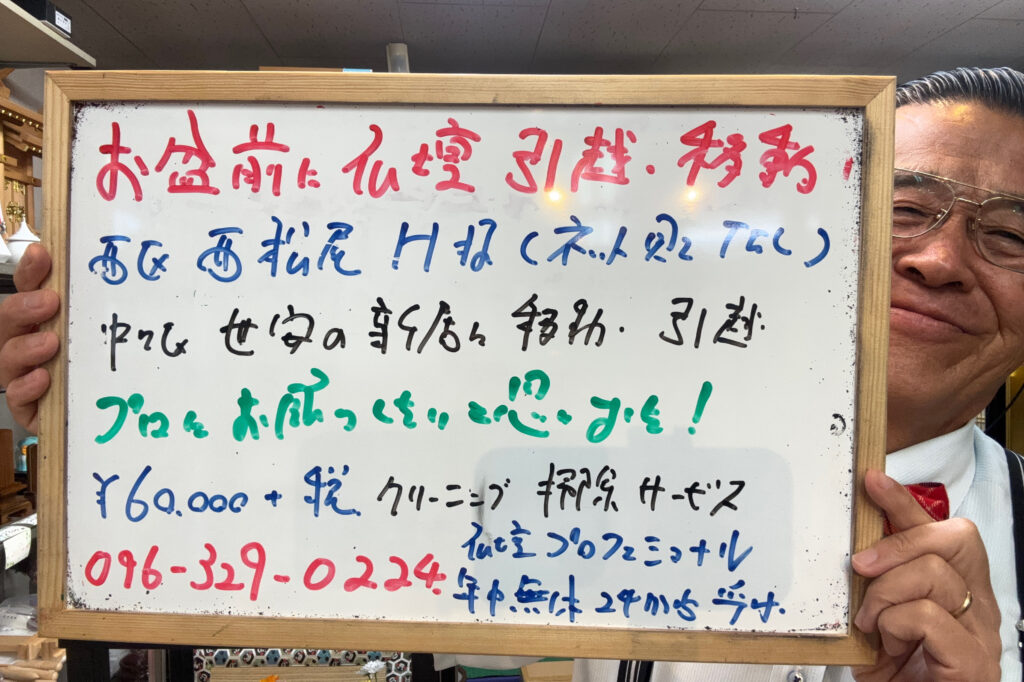 お盆前に 仏壇 引越・移動!
西区 西松尾 H様 (ネット見て TEL)
中央区 世安の新居に 移動・引越
プロにお願いしたいと思いました!
¥60.000+税. クリーニング 掃除サービス
仏壇プロフェッショナル
096-329-0224. 年中無休 24から受付.